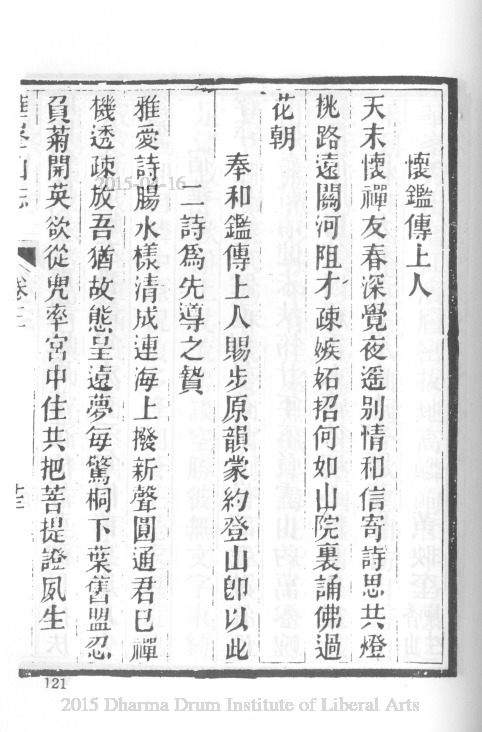 懷鑑傳上人
天末懷禪友春深覺夜遥别情和信寄詩思共燈
挑路遠關河阻才疎嫉妬招何如山院裏誦佛過
花朝
奉和鑑傳上人賜步原韻蒙約登山卽以此
二詩爲先導之贄
雅愛詩腸水樣清成連海上撥新聲圓通君已禪
機透疎放吾猶故態呈遠夢每驚桐下葉舊盟忍
負菊開英欲從兜率宮中住共把菩提證夙生
卷二
十三
121
2015-04-16
2015 Dharma Drum Institute of Liberal Arts